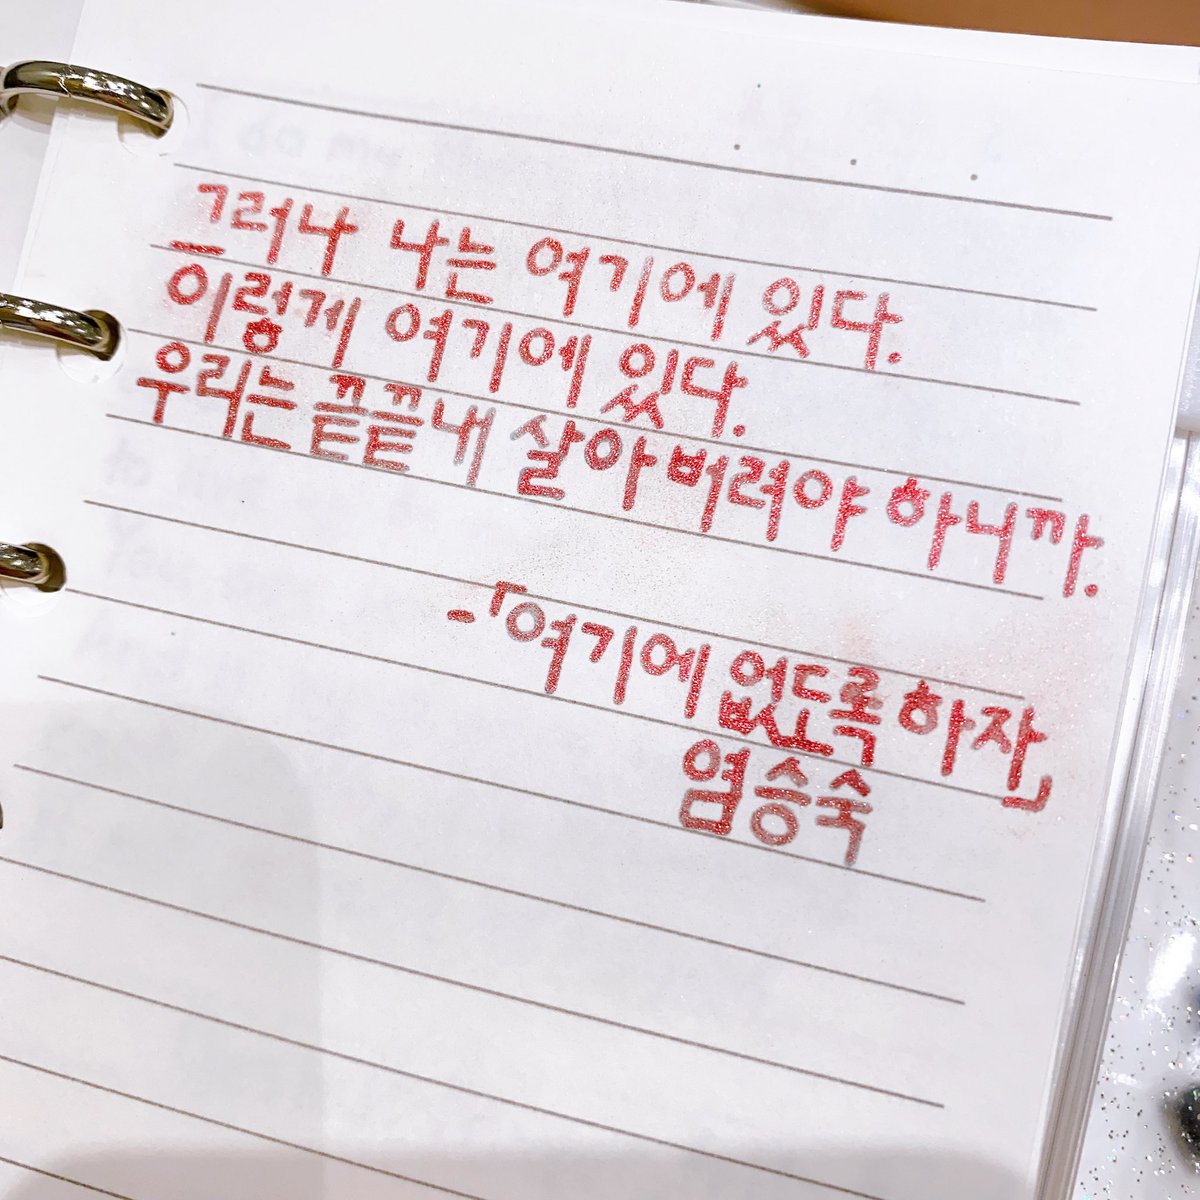 그러나 나는 여기에 있다.
이렇게 여기에 있다.
우리는 끝끝내 살아버려야 하니까.
-「여기에 없도록 하자」
염승숙